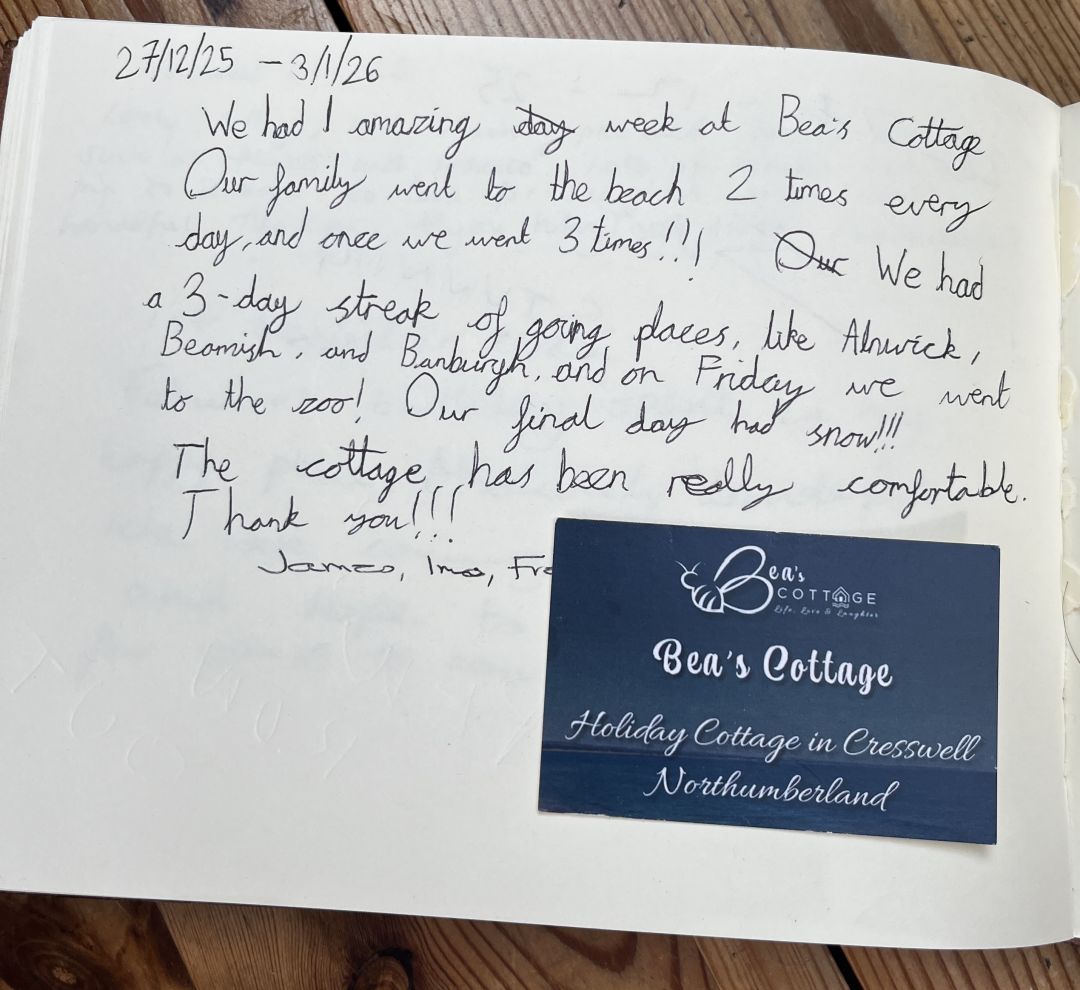 27/12/25 - 3/1/26
We had 1 amazing day week at Bea's Cottage
Our family went to the beach 2 times every
day, and once we went 3 times!!! Our We had
a 3-day streak of going places, like Alnwick,
Beamish, and Banburgh, and on Friday we went
to the zoo! Our final day had snow!!!
The cottage has been really comfortable.
Thank you!!!
James, Imo, Fre
Bea's
COTTAGE
Life, Love & Laughter
Bea's Cottage
Holiday Cottage in Cresswell
Northumberland